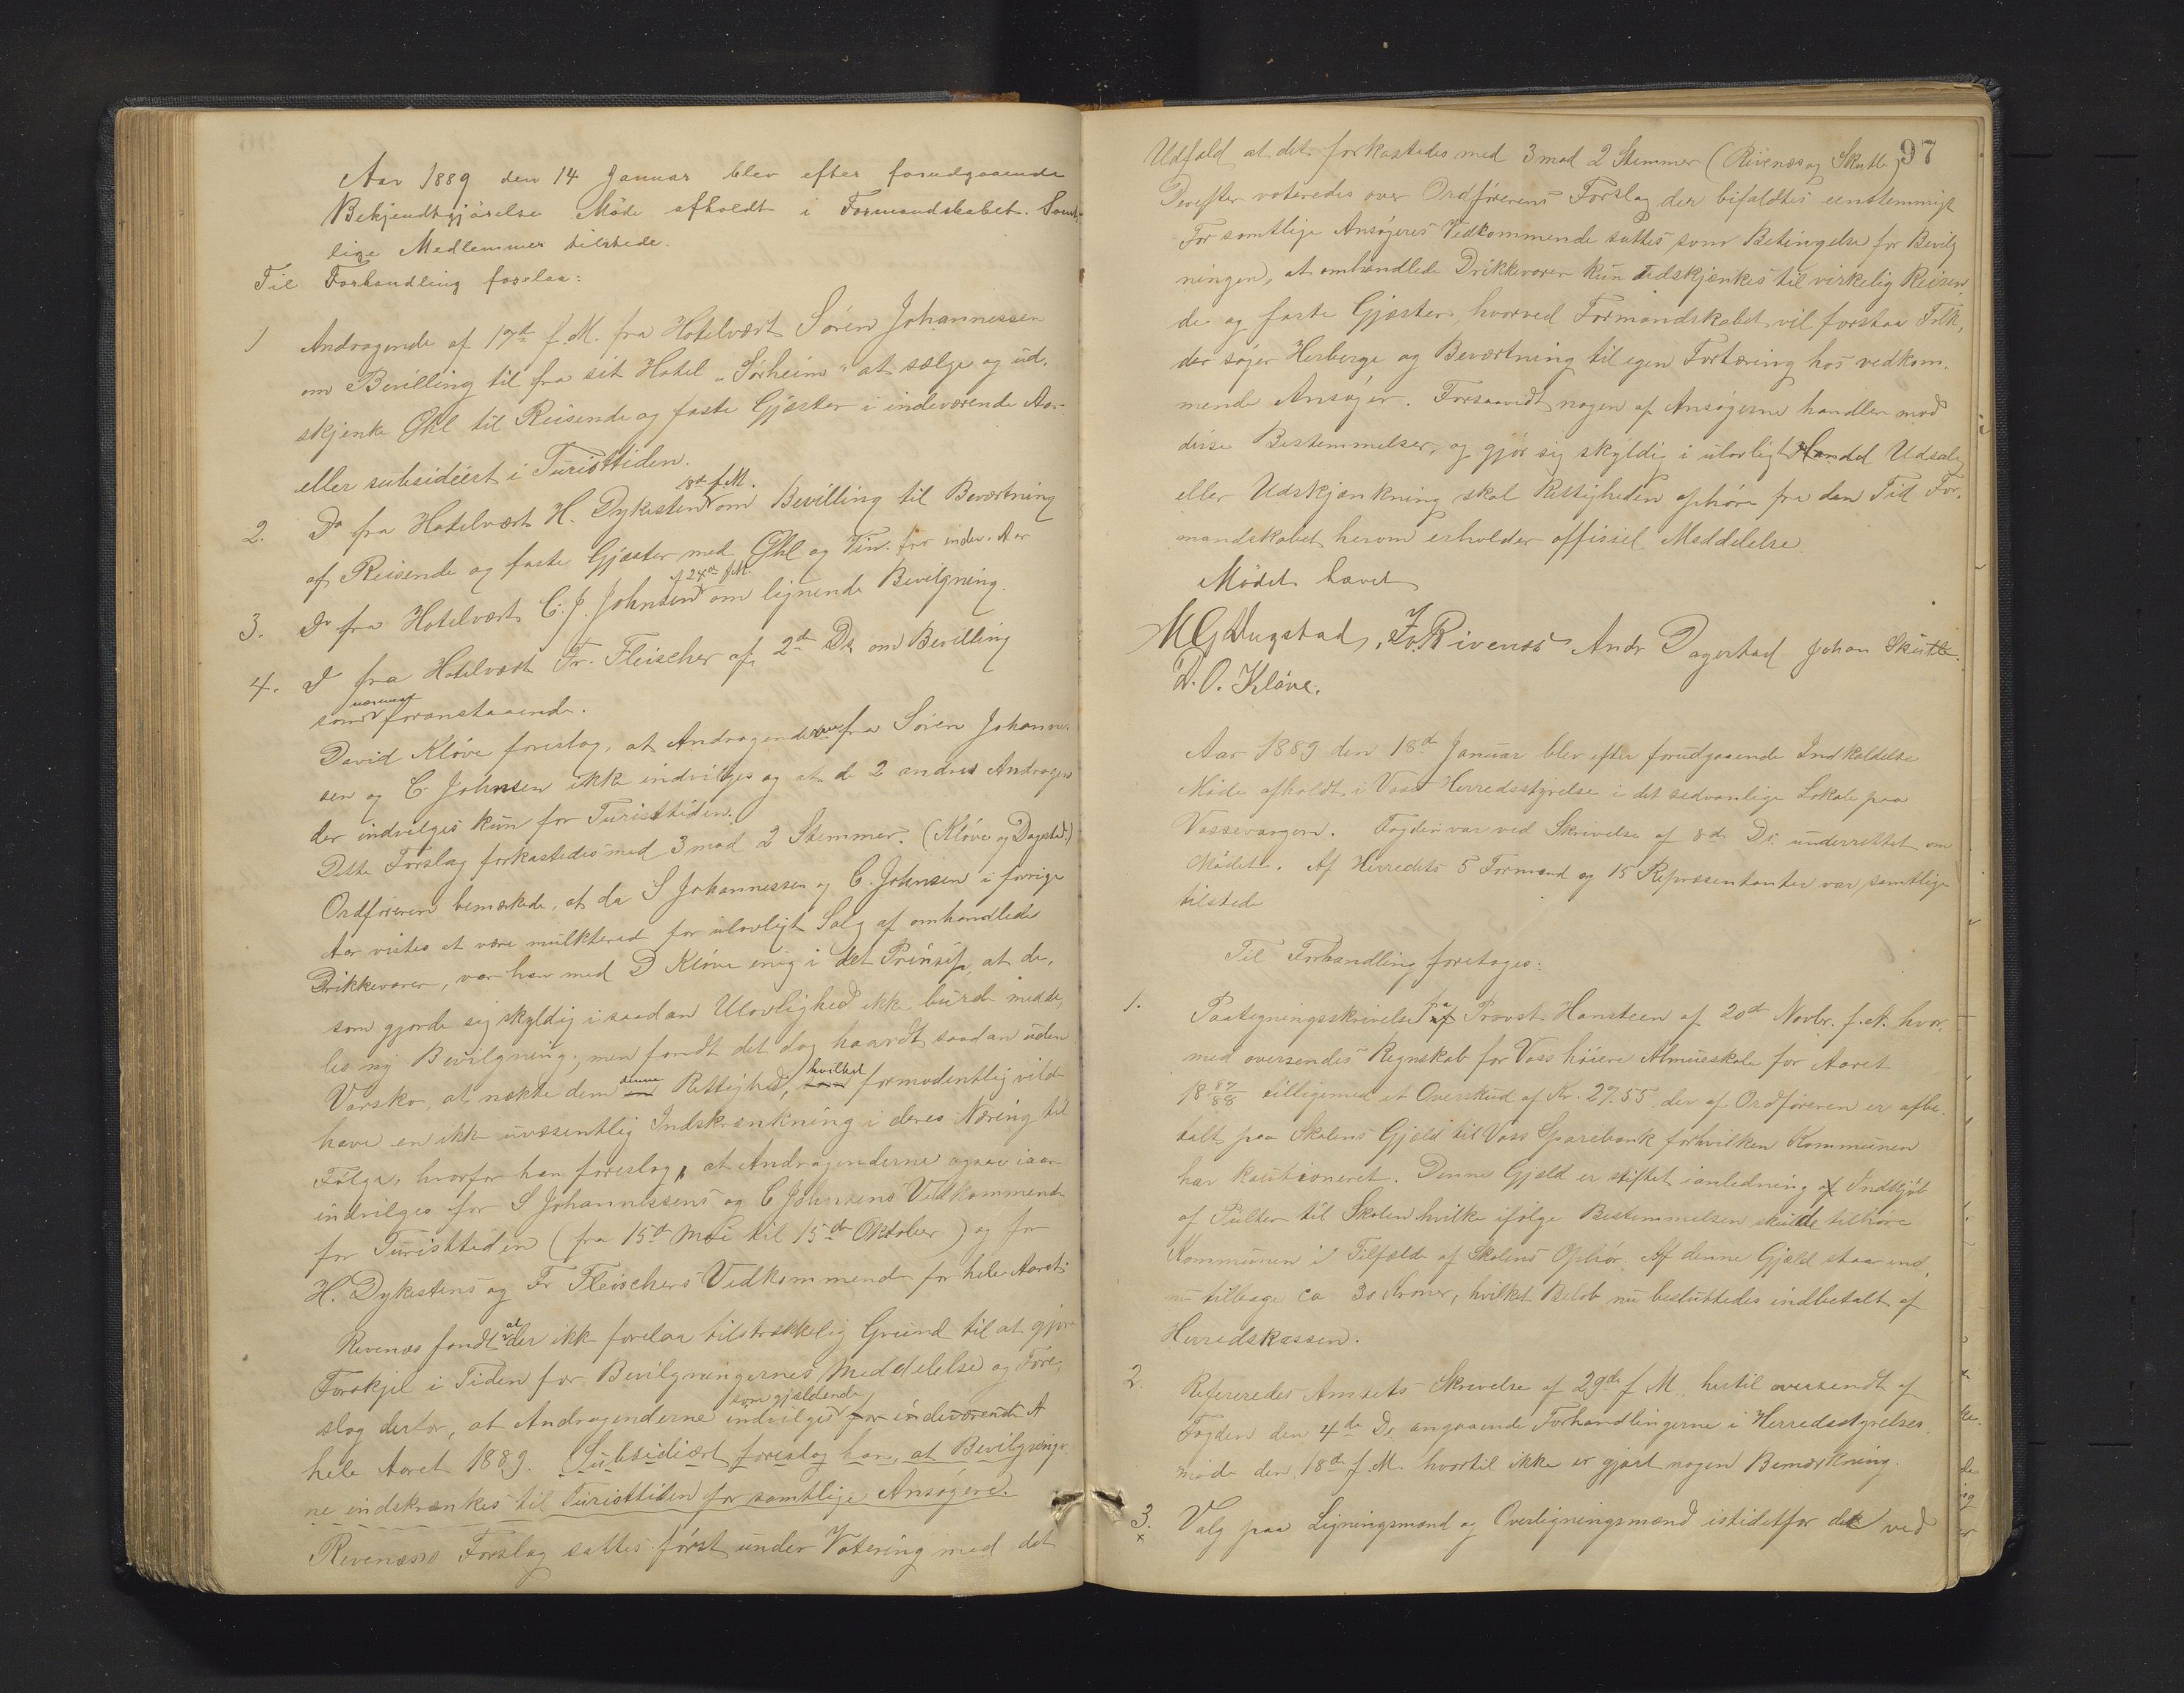 Aar 1889 den 14 Januar blev efter forudgaaende
Bekjendtgjörelse Möde afholdt i Formandskabet. Samt-
lige Medlemmer tilstede.
Til Forhandling forelaa:
1 Andragende af 17de f.M. fra Hotelvært Sören Johannessen
om Bevilling til fra sit Hotel "Sörheim" at sælge og ud-
skjenke Øhl til Reisende og faste Gjæster i indeværende Aar
eller subsidiert i Turisttiden.
2. Do fra Hotelvært H. Dykesten 18de f.M. om Bevilling til Beværtning
af Reisende og faste Gjæster med Øhl og Vin for indev. Aar
3. Do fra Hotelvært C. J. Johnsen af 24de f.M. om lignende Bevilgning.
4. D fra Hotelvært Fr. Fleischer af 2de Ds om Bevilling
som nærmest foranstaaende.
David Klöve foreslog, at Andragenderne fra Sören Johannes-
sen og C. Johnsen ikke indvilges og at de 2 andres Andragen-
der indvilges kun for Turisttiden.
Dette Forslag forkastedes med 3 mod 2 Stemmer. (Klöve og Dagstad.)
Ordföreren bemærkede, at da S Johannessen og C. Johnsen i forrige
Aar vistes at være mulkteret for ulovligt Salg af omhandlede
Drikkevarer, var han med D Klöve enig i det Prinsip, at de,
som gjorde sig skyldig i saadan Ulovlighed ikke burde medde-
les ny Bevilgning; men fandt det dog haardt saadan uden
Varsko, at nekte dem denne Rettighed, hvilket formodentlig vilde
have en ikke uvæsentlig Indskrænkning i deres Næring til
Fölge, hvorfor han foreslog, at Andragenderne ogsaa iaar
indvilges for S Johannessens og C Johnsens Vedkommende
for Turisttiden (fra 15de Mai til 15de Oktober) og for
H. Dykestens og Fr Fleischers Vedkommende for hele Aaret.
Revenæs fandt at der ikke forelaa tilstrækkelig Grund til at gjöre
Forskjel i Tiden for Bevilgningernes Meddelelse og Fore-
slog derfor, at Andragenderne indvilges som gjældende for indeværende A
hele Aaret 1889. Subsidiært foreslog han, at Bevilgninger-
ne indskrænkes til Turisttiden for samtlige Ansögere.
Revenæs's Forslag sattes först under Votering med det
97
Udfald at det forkastedes med 3 mod 2 Stemmer (Rivenæs og Skutle)
Derefter voteredes over Ordförerens Forslag der bifaldtes eenstemmigt
For samtlige Ansögeres Vedkommende sattes som Betingelse for Bevilg
ningen, at omhandlede Drikkevarer kun udskjænkes til virkelig Reisen
de og faste Gjæster, hvorved Formandskabet vil forstaa Folk,
der söger Herberge og Beværtning til egen Fortæring hos vedkom-
mende Ansöger. Forsaavidt nogen af Ansögerne handler mod
disse Bestemmelser, og gjör sig skyldig i ulovligt Handel Udsalg
eller Udskjænkning skal Rettigheden ophöre fra den Tid For-
mandskabet herom erholder offisiel Meddelelse
Mödet hævet
M G Dugstad, Iv. Rivenæs Andr Dagestad Johan Skutle.
D. O. Klöve.
Aar 1889 den 18de Januar blev efter forudgaaende Indkaldelse
Möde afholdt i Voss Herredsstyrelse i det sedvanlige Lokale paa
Vossevangen. Fogden var ved Skrivelse af 8de Ds. underrettet om
Mödet. Af Herredets 5 Formænd og 15 Repræsentanter var samtlige
tilstede
Til Forhandling foretoges:
1. Paategningsskrivelse fra Provst Hansteen af 20de Novbr. f.A. hvor-
med oversendes Regnskab for Voss höiere Almueskole for Aaret
18 87/88 tilligemed et Overskud af Kr. 27.55. der af Ordföreren er afbe-
talt paa Skolens Gjæld til Voss Sparebank forhvilken Kommunen
har kautioneret. Denne Gjæld er stiftet i anledning af Indkjöb
af Pulter til Skolen hvilke ifölge Bestemmelsen skulde tilhöre
Kommunen i Tilfælde af Skolens Ophör. Af denne Gjæld staar end-
nu tilbage ca 30 Kroner, hvilket Belöb nu besluttedes indbetalt af
Herredskassen.
2. Refereredes Amtets Skrivelse af 29de f M. hertil oversendt af
Fogden den 4de Ds. angaaende Forhandlingerne i Herredsstyrelses-
möde den 18de f.M. hvortil ikke er gjort nogen Bemærkning.
3. Valg paa Ligningsmænd og Overligningsmænd istedetfor de ved
x